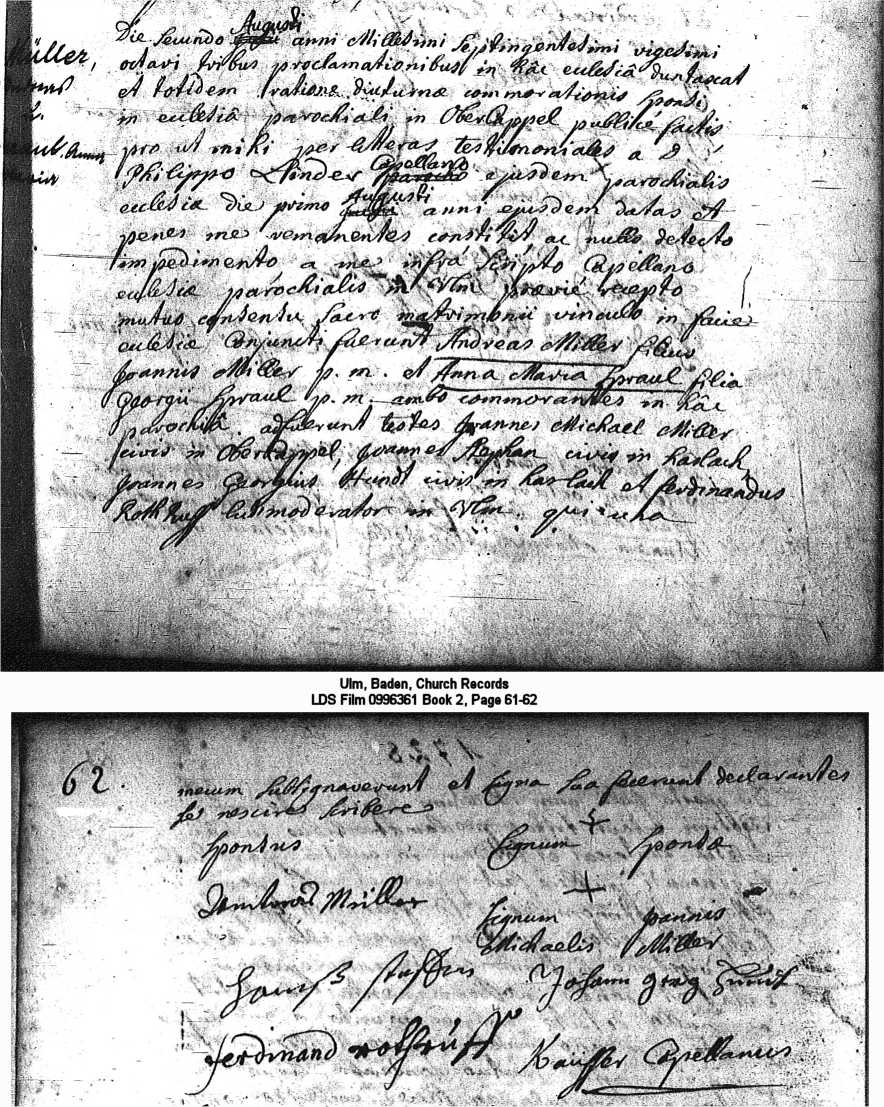 Müller,
Augusti
Die secundo anni Millesimi Septingentesimi vigesimi
octavi tribus proclamationibus in hâc ecclesiâ duntaxat
et totidem ratione diuturnæ commorationis sponsi
in ecclesiâ parochiali in OberCappel publicé factis
pro ut mihi per litteras testimoniales a D
Capellano
Philippo Linder parocho ejusdem parochialis
Augusti
ecclesiæ die primo anni ejusdem datas et
penes me remanentes constitit ac nullo detecto
impedimento a me infra scripto Capellano
ecclesiæ parochialis in Vlm prævié recepto
mutuo consensu Sacro matrimonii vinculo in facie
ecclesiæ Conjuncti fuerunt Andreas Miller filius
Joannis Miller p. m. et Anna Maria Spraul filia
Georgii Spraul p. m. ambo commorantes in hâc
parochiâ. adfuerunt testes Joannes Michael Miller
civis in OberCappel, Joannes Stephan civis in haslach,
Joannes Georgius Hundt civis in haslach et ferdinandus
Rothruff ludimoderator in Vlm qui una
Ulm, Baden, Church Records
LDS Film 0996361 Book 2, Page 61-62
1728
62
mecum subsignaverunt et signa sua fecerunt declarantes
se nescire scribere
Sponsus Signum + Sponsæ
Andreas Müller
+
Signum Joannis
Michaelis Miller
Hanß Johann Georg
ferdinand rothruff Kauffer Capellanus